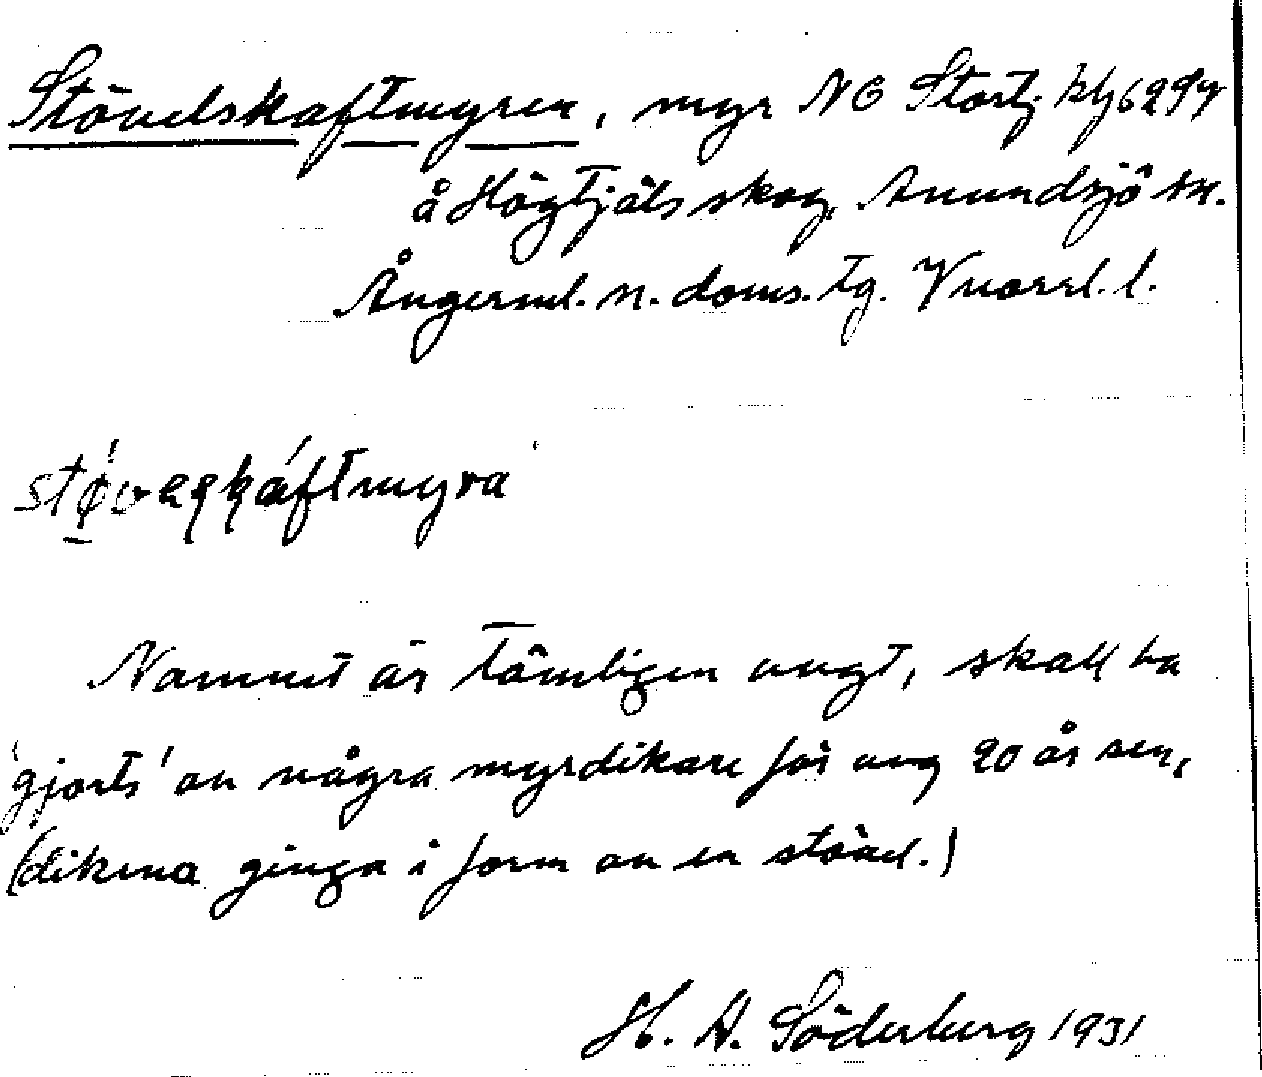 Stövelskaftmyren, myr NO Stortj
å Högtjäls skog, Anundsjö sn.
Ångerml. n. doms. tg. Vnorrl. l.
Namnet är tämligen ungt, skall ha
'gjorts' av några myrdikare för ung 20 år sen,
(dikena gingo i form av en stövel.)
H. A. Söderberg 1931